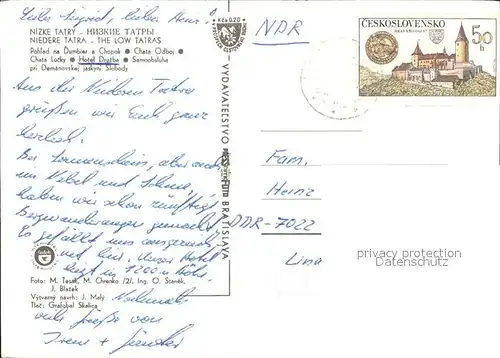 Liebe Sigrid, lieber Heinz!
NÍZKE TATRY - НИЗКИЕ ТАТРЫ
NIEDERE TATRA - THE LOW TATRAS
Pohľad na Ďumbier a Chopok ● Chata Odboj ●
Chata Lúčky ● Hotel Družba ● Samoobsluha
pri Demänovskej jaskyni Slobody
Aus der Niederen Tatra
grüßen wir Euch ganz
herzlich.
Bei Sonnenschein, aber auch
im Nebel und Schnee,
haben wir schon zünftige
Bergwanderungen gemacht.
Es gefällt uns
gut hier. Unser Hotel
liegt in 1200 m Höhe.
Foto: M. Tesák, M. Chrenko /2/, Ing. O. Staněk,
J. Blažek
Výtvarný návrh: J. Malý
Tlač: Grafobal Skalica
Nochmals
viele Grüße von
Irene + Günter
Kčs 0,20
VYDAVATEĽSTVO
PRESSFOTO
BRATISLAVA
NDR
ČESKOSLOVENSKO
50 h
Fam.
Heinz
DDR-7022
privacy protection
VOLDEMARS.DE